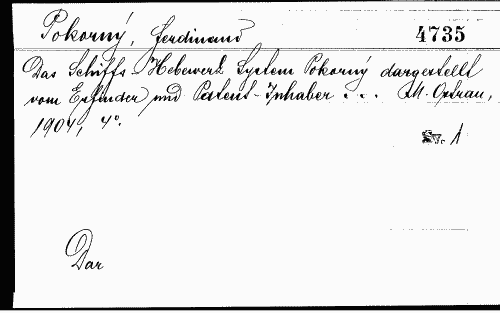 Pokorný, Ferdinand
4735
Das Schiffs-Hebewerk System Pokorný dargestellt
vom Erfinder und Patent-Inhaber . . . M.-Ostrau,
1904, 4°.
1
Dar